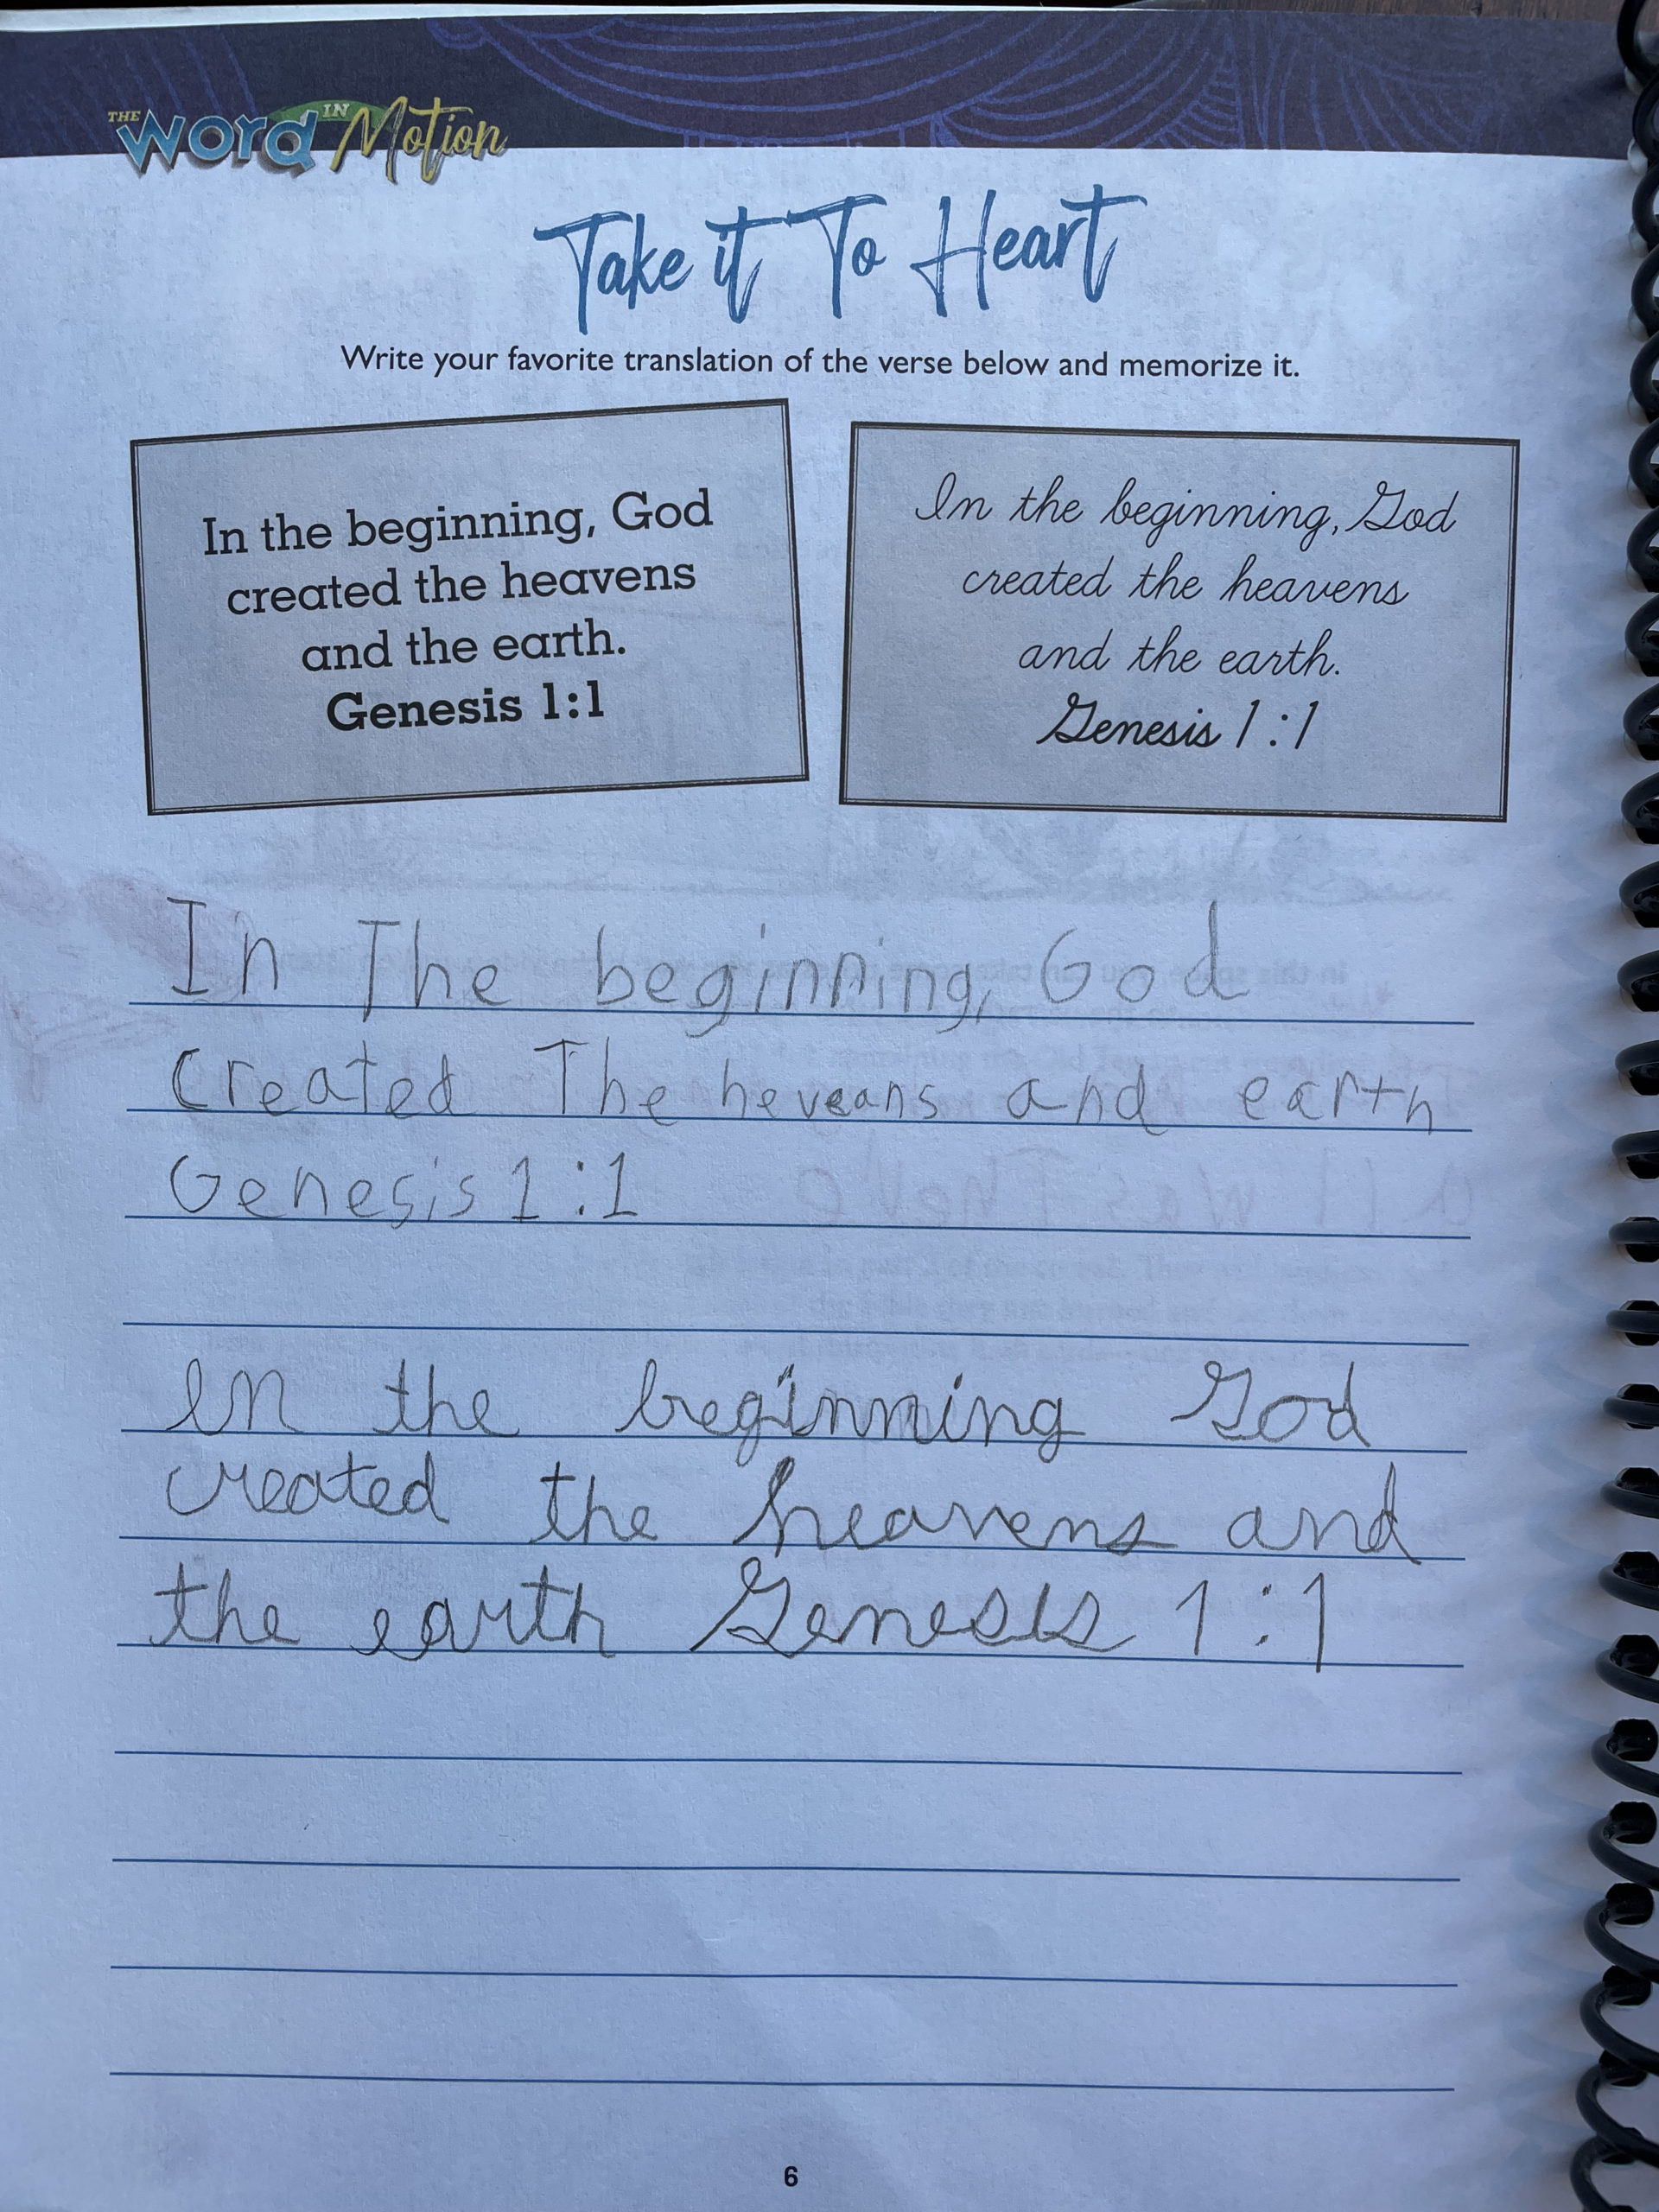 THE WORD IN Motion
Take it To Heart
Write your favorite translation of the verse below and memorize it.
In the beginning, God
created the heavens
and the earth.
Genesis 1:1
In the beginning, God
created the heavens
and the earth.
Genesis 1:1
In The beginning, God
created The heveans and earth
Genesis 1:1
In the beginning God
created the heavens and
the earth Genesis 1:1
6